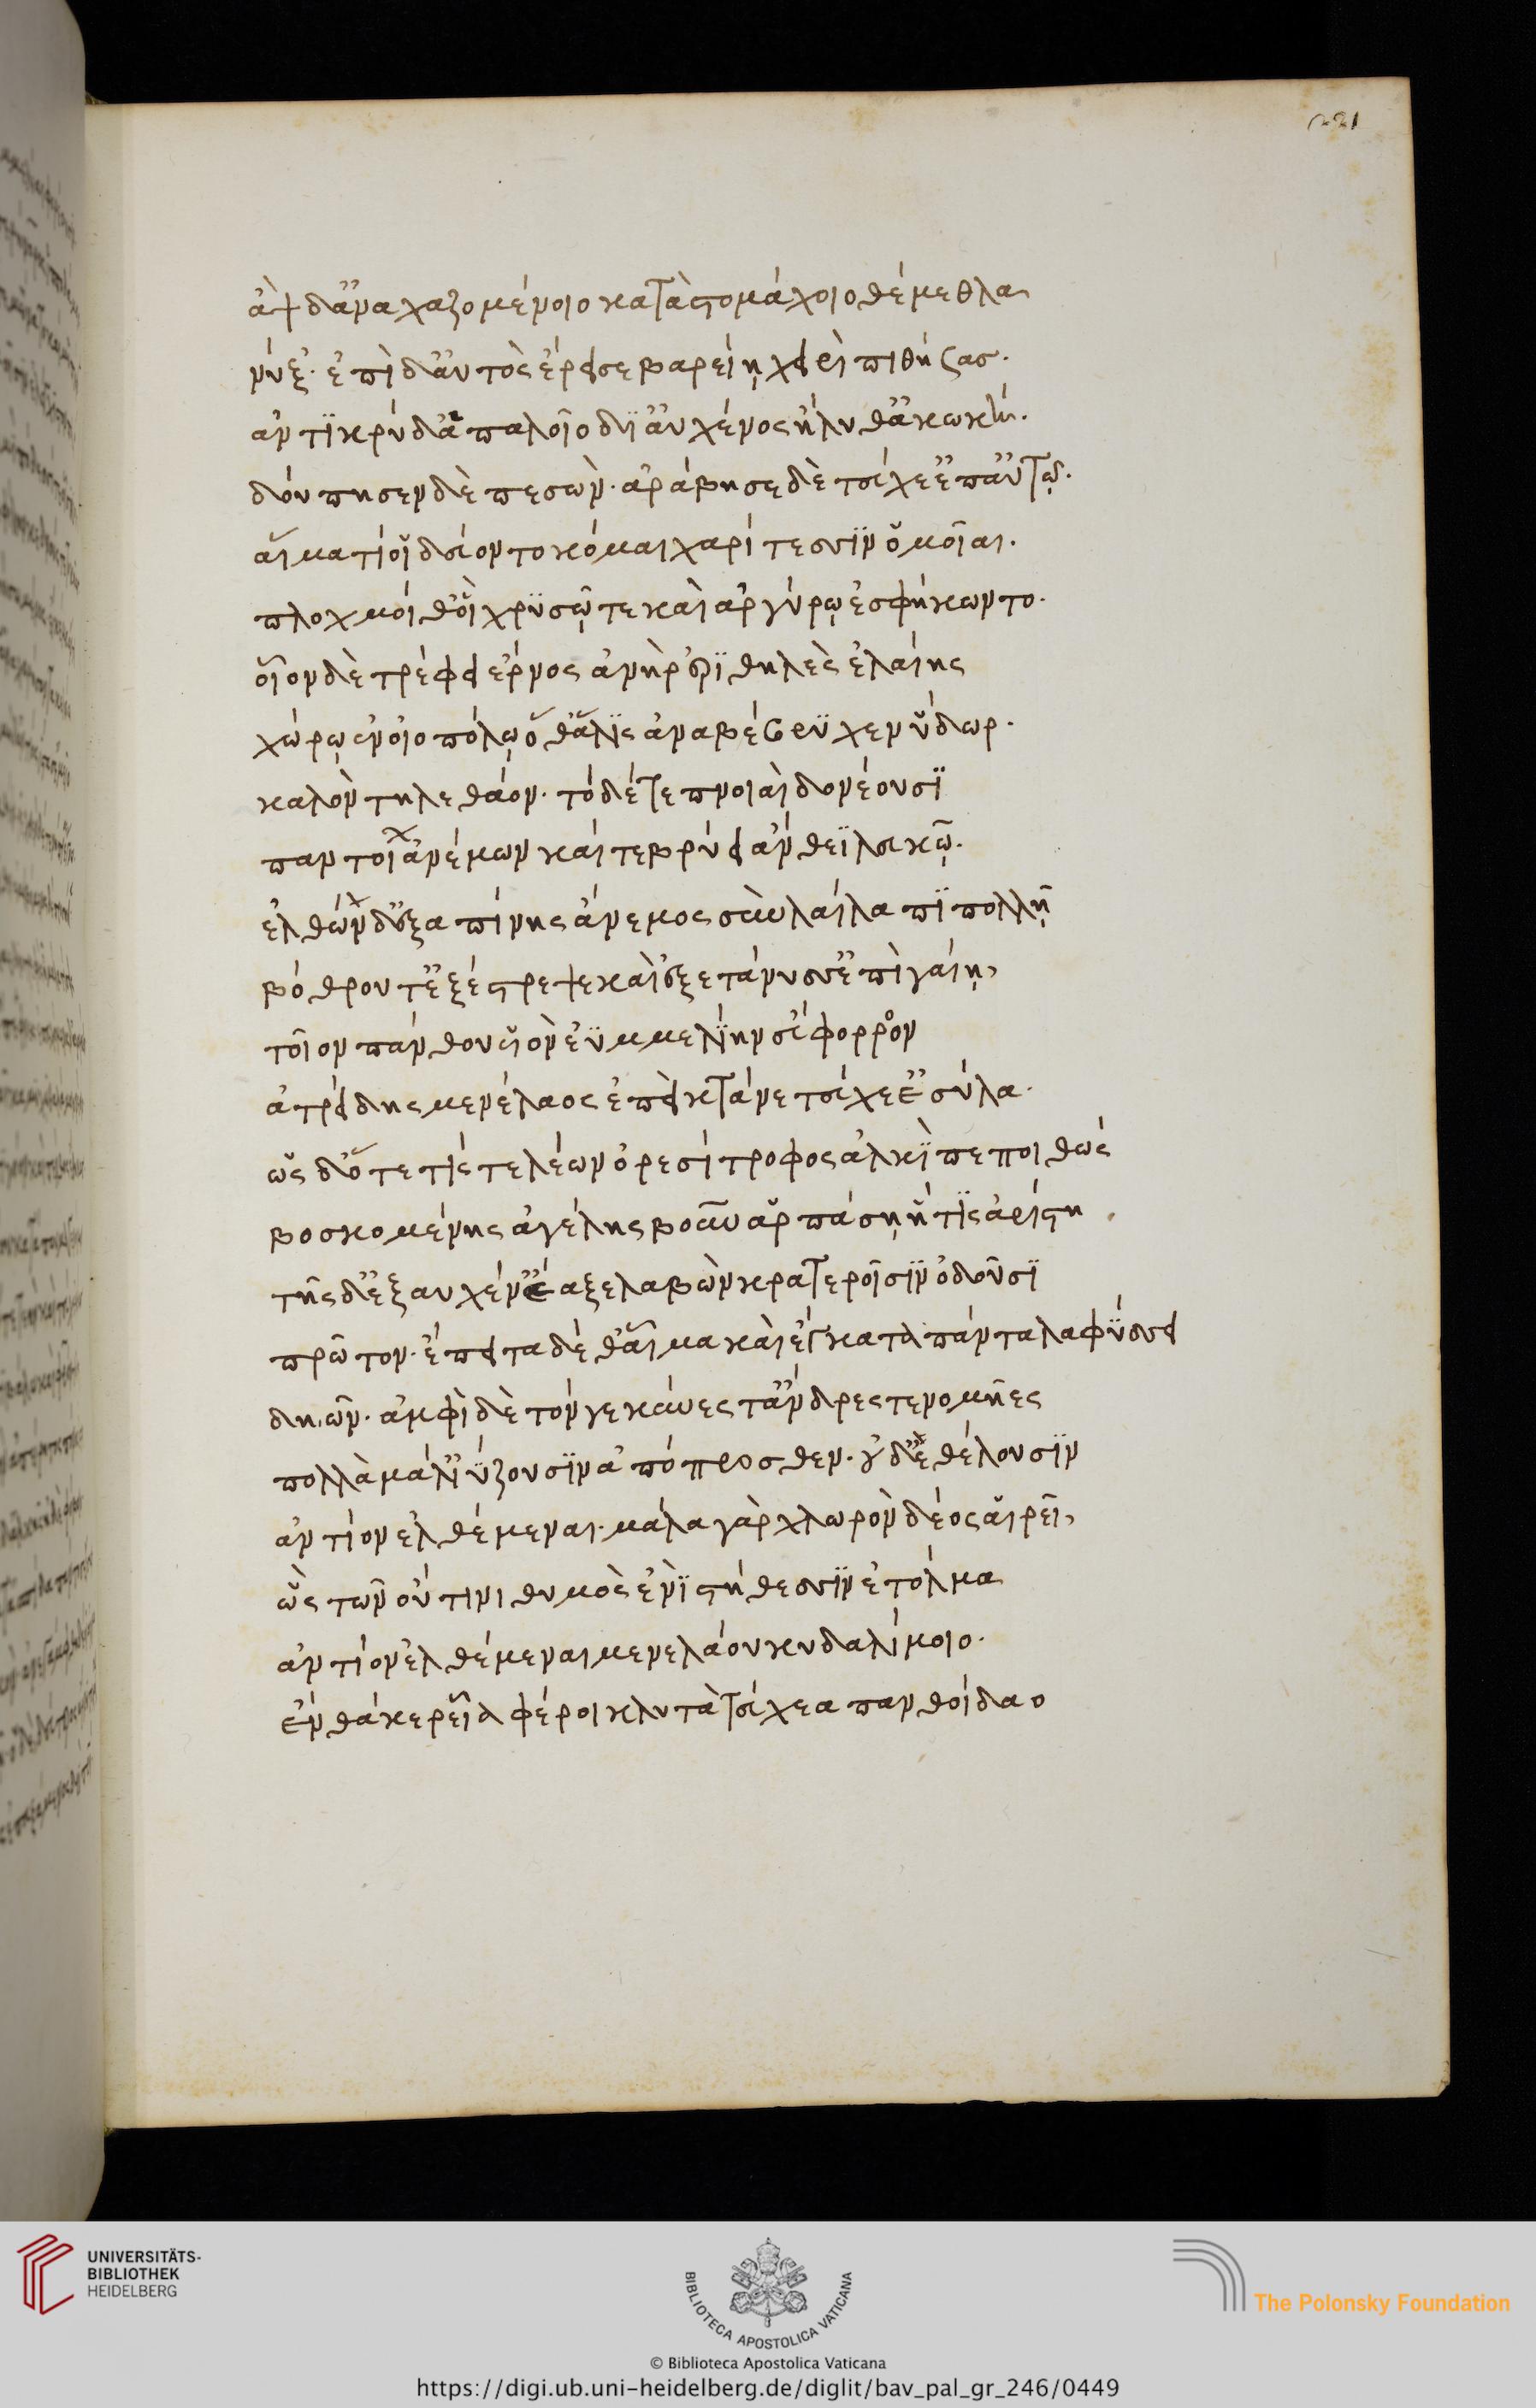 221
ἂψ δ' ἄρα χαζομένοιο κατὰ στομάχοιο θέμεθλα
νύξ· ἐπὶ δ' αὐτὸς ἔρεισε βαρείῃ χειρὶ πιθήσας·
ἀντϊκρὺ δ' ἁπαλοῖο δϊ' αὐχένος ἤλυθ' ἀκωκή·
δούπησεν δὲ πεσών· ἀράβησε δὲ τεύχε' ἐπ' αὐτῷ·
αἵματί οἱ δεύοντο κόμαι χαρίτεσσϊν ὁμοῖαι·
πλοχμοί θ' οἳ χρϋσῷ τε καὶ ἀργύρῳ ἐσφήκωντο·
οἷον δὲ τρέφει ἔρνος ἀνὴρ ἐρϊθηλὲς ἐλαίης
χώρῳ ἐν οἰοπόλῳ ὅθ' ἅλϊς ἀναβέβρυχεν ὕδωρ·
καλὸν τηλεθάον· τὸ δέ τε πνοιαὶ δονέουσϊ
παντοίων ἀνέμων καί τε βρύει ἄνθεϊ λευκῷ·
ἐλθὼν δ' ἐξαπίνης ἄνεμος σὺν λαίλαπϊ πολλῇ
βόθρου τ' ἐξέστρεψε καὶ ἐξετάνυσσ' ἐπὶ γαίῃ,
τοῖον πάνθου υἱὸν ἐϋμμελίην εὔφορβον
ἀτρείδης μενέλαος ἐπεὶ κτάνε τεύχε' ἐσύλα·
ὡς δ' ὅτε τίς τε λέων ὀρεσίτροφος ἀλκὶ πεποιθώς
βοσκομένης ἀγέλης βοῦν ἁρπάσῃ ἥ τϊς ἀρίστη
τῆς δ' ἐξ αὐχέν' ἔαξε λαβὼν κρατεροῖσϊν ὀδοῦσϊ
πρῶτον· ἔπειτα δέ θ' αἷμα καὶ ἔγκατα πάντα λαφύσσει
δηιῶν· ἀμφὶ δὲ τόν γε κύνες τ' ἄνδρες τε νομῆες
πολλὰ μάλ' ἰύζουσϊν ἀπόπροσθεν· οὐδ' ἐθέλουσϊν
ἀντίον ἐλθέμεναι· μάλα γὰρ χλωρὸν δέος αἱρεῖ,
ὣς τῶν οὔτινι θυμὸς ἐνὶ στήθεσσϊν ἐτόλμα
ἀντίον ἐλθέμεναι μενελάου κυδαλίμοιο·
ἔνθά κε ῥεῖα φέροι κλυτὰ τεύχεα πανθοίδαο
UNIVERSITÄTS-
BIBLIOTHEK
HEIDELBERG
BIBLIOTECA APOSTOLICA VATICANA
The Polonsky Foundation
© Biblioteca Apostolica Vaticana
https://digi.ub.uni-heidelberg.de/diglit/bav_pal_gr_246/0449